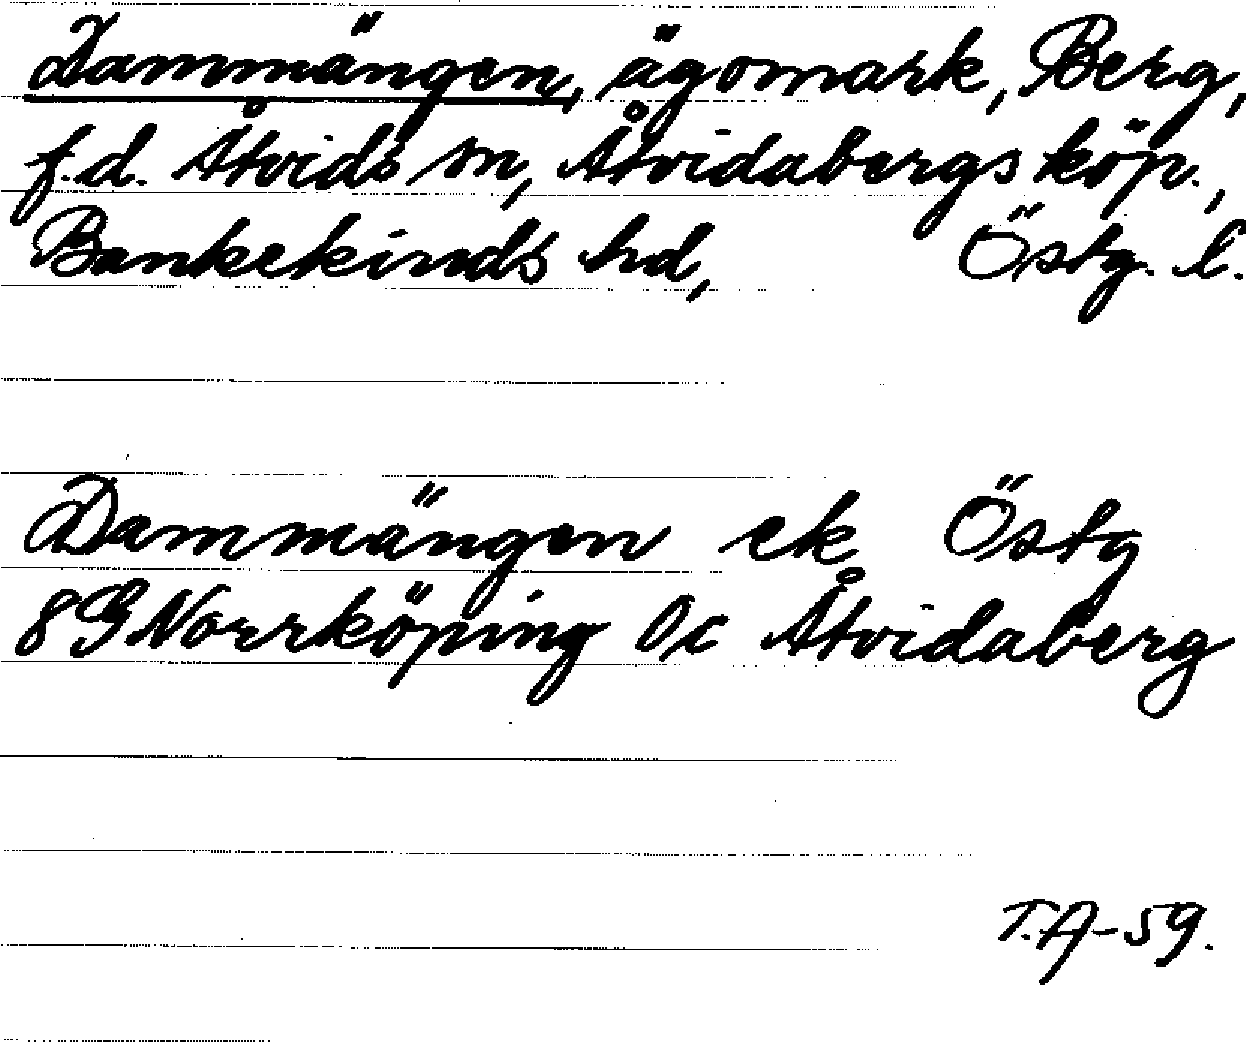 Dammängen, ägomark, Berg,
f.d. Åtvids sn, Åtvidabergs köp.,
Bankekinds hd, Östg. l.
Dammängen ek Östg
8G Norrköping 0c Åtvidaberg
T.A-59.